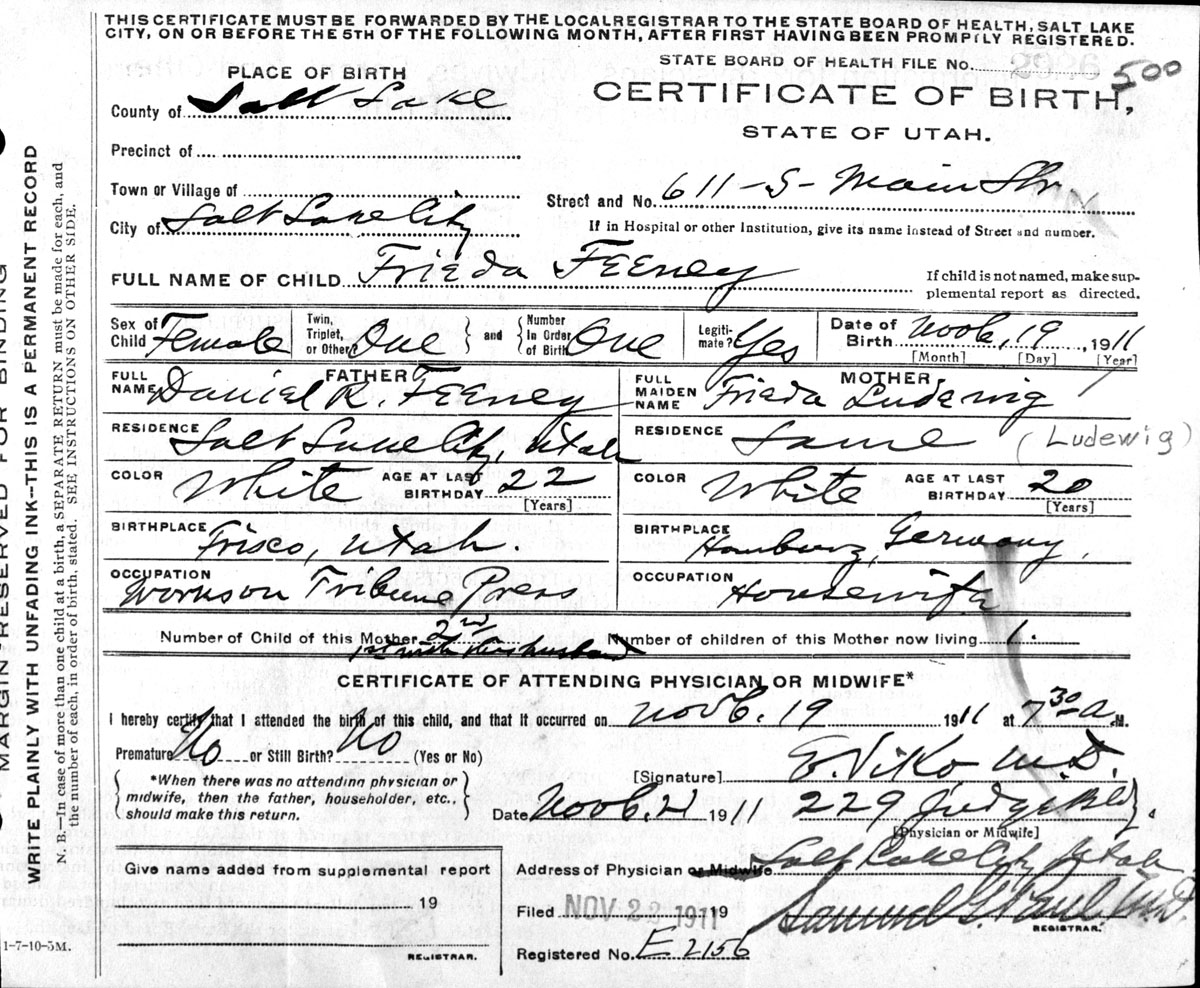 THIS CERTIFICATE MUST BE FORWARDED BY THE LOCAL REGISTRAR TO THE STATE BOARD OF HEALTH, SALT LAKE
CITY, ON OR BEFORE THE 5TH OF THE FOLLOWING MONTH, AFTER FIRST HAVING BEEN PROMPTLY REGISTERED.
STATE BOARD OF HEALTH FILE NO. 500
PLACE OF BIRTH
CERTIFICATE OF BIRTH,
STATE OF UTAH.
County of Salt Lake
Precinct of
Town or Village of
Street and No. 611-S-Main Str.
City of Salt Lake City
If in Hospital or other Institution, give its name instead of Street and number.
FULL NAME OF CHILD Frieda Feeney
If child is not named, make sup-
plemental report as directed.
Sex of Child Female
Twin, Triplet, or Other? One and Number In Order of Birth One
Legiti-mate? Yes
Date of Birth Novb. 19, 1911
[Month] [Day] [Year]
FATHER
FULL NAME Daniel R. Feeney
MOTHER
FULL MAIDEN NAME Frieda Ludewig
RESIDENCE Salt Lake City, Utah
RESIDENCE Same (Ludewig)
COLOR White AGE AT LAST BIRTHDAY 22 [Years]
COLOR White AGE AT LAST BIRTHDAY 20 [Years]
BIRTHPLACE Frisco, Utah.
BIRTHPLACE Hamburg, Germany,
OCCUPATION Works on Tribune Press
OCCUPATION Housewife
Number of Child of this Mother 2nd
1st with this husband
Number of children of this Mother now living 1.
CERTIFICATE OF ATTENDING PHYSICIAN OR MIDWIFE*
I hereby certify that I attended the birth of this child, and that it occurred on Novb. 19 1911 at 7 30 a.M.
Premature No or Still Birth? No (Yes or No)
*When there was no attending physician or
midwife, then the father, householder, etc.,
should make this return.
[Signature] E. Viko, M.D.
Date Novb. 21 1911 229 Judge Bldg.
[Physician or Midwife]
Address of Physician or Midwife Salt Lake City Utah
Give name added from supplemental report
19
REGISTRAR.
Filed NOV 22 1911 19
Samuel G. Paul M.D.
REGISTRAR.
Registered No. E 2156
1-7-10-5M.
MARGIN RESERVED FOR BINDING
WRITE PLAINLY WITH UNFADING INK--THIS IS A PERMANENT RECORD
N. B.—In case of more than one child at a birth, a SEPARATE RETURN must be made for each, and
the number of each, in order of birth, stated. SEE INSTRUCTIONS ON OTHER SIDE.